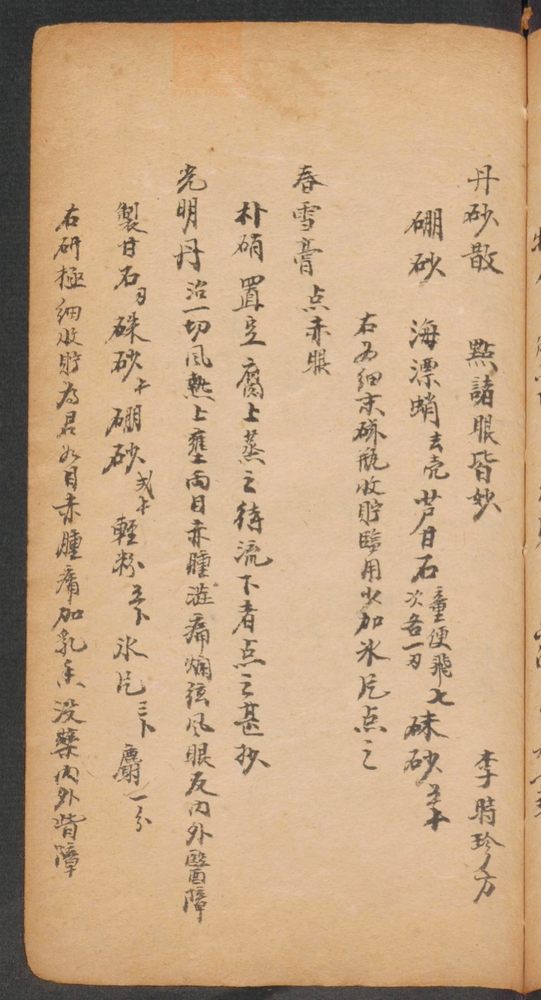 丹砂散 點諸眼皆妙 李時珍方
硼砂 海漂蛸去壳 芦甘石童便飛七次各一刄 硃砂五卞
右為細末磁瓶收貯臨用少加氷片点之
春雪膏 点赤眼
朴硝 置豆腐上蒸之待流下者点之甚妙
光明丹 治一切風熱上壅両目赤腫澁痛爛弦风眼及内外醫障
製甘石刄 硃砂卞 硼砂弍卞 輕粉五卞 氷片三卜 麝一分
右研極細收貯為君如目赤腫痛加乳香没藥内外眥障